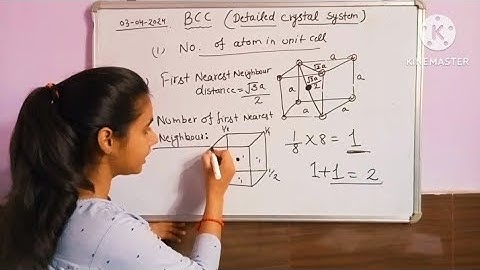 03-04-2024 BCC (Detailed crystal system)
(1) No. of atom in unit cell
First Nearest Neighbour
distance = √3a/2
Number of first Nearest
Neighbour:
√2a
a
a
a
a
√3a
2
1/8 × 8 = 1
1+1 = 2
1/2
KINEMASTER